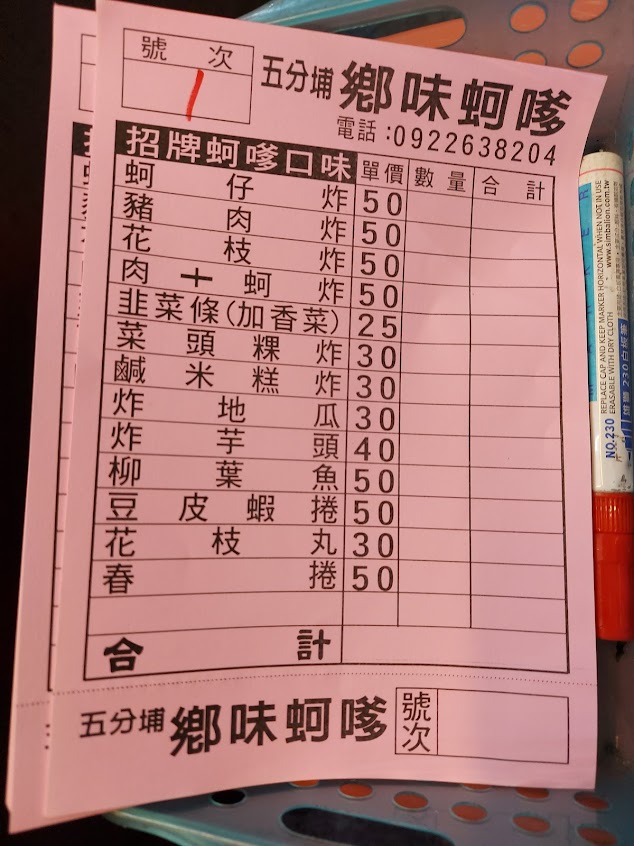 號 次
1
五分埔 鄉味蚵嗲
電話:0922638204
招牌蚵嗲口味 單價 數量 合計
蚵仔炸 50
豬肉炸 50
花枝炸 50
肉+蚵炸 50
韭菜條(加香菜) 25
菜頭粿炸 30
鹹米糕炸 30
炸地瓜 30
炸芋頭 40
柳葉魚 50
豆皮蝦捲 50
花枝丸 30
春捲 50
合計
五分埔 鄉味蚵嗲 號次
NO.230 REPLACE CAP AND KEEP MARKER HORIZONTAL WHEN NOT IN USE
ERASABLE WITH DRY CLOTH www.simbalion.com.tw
雄獅 230白板筆